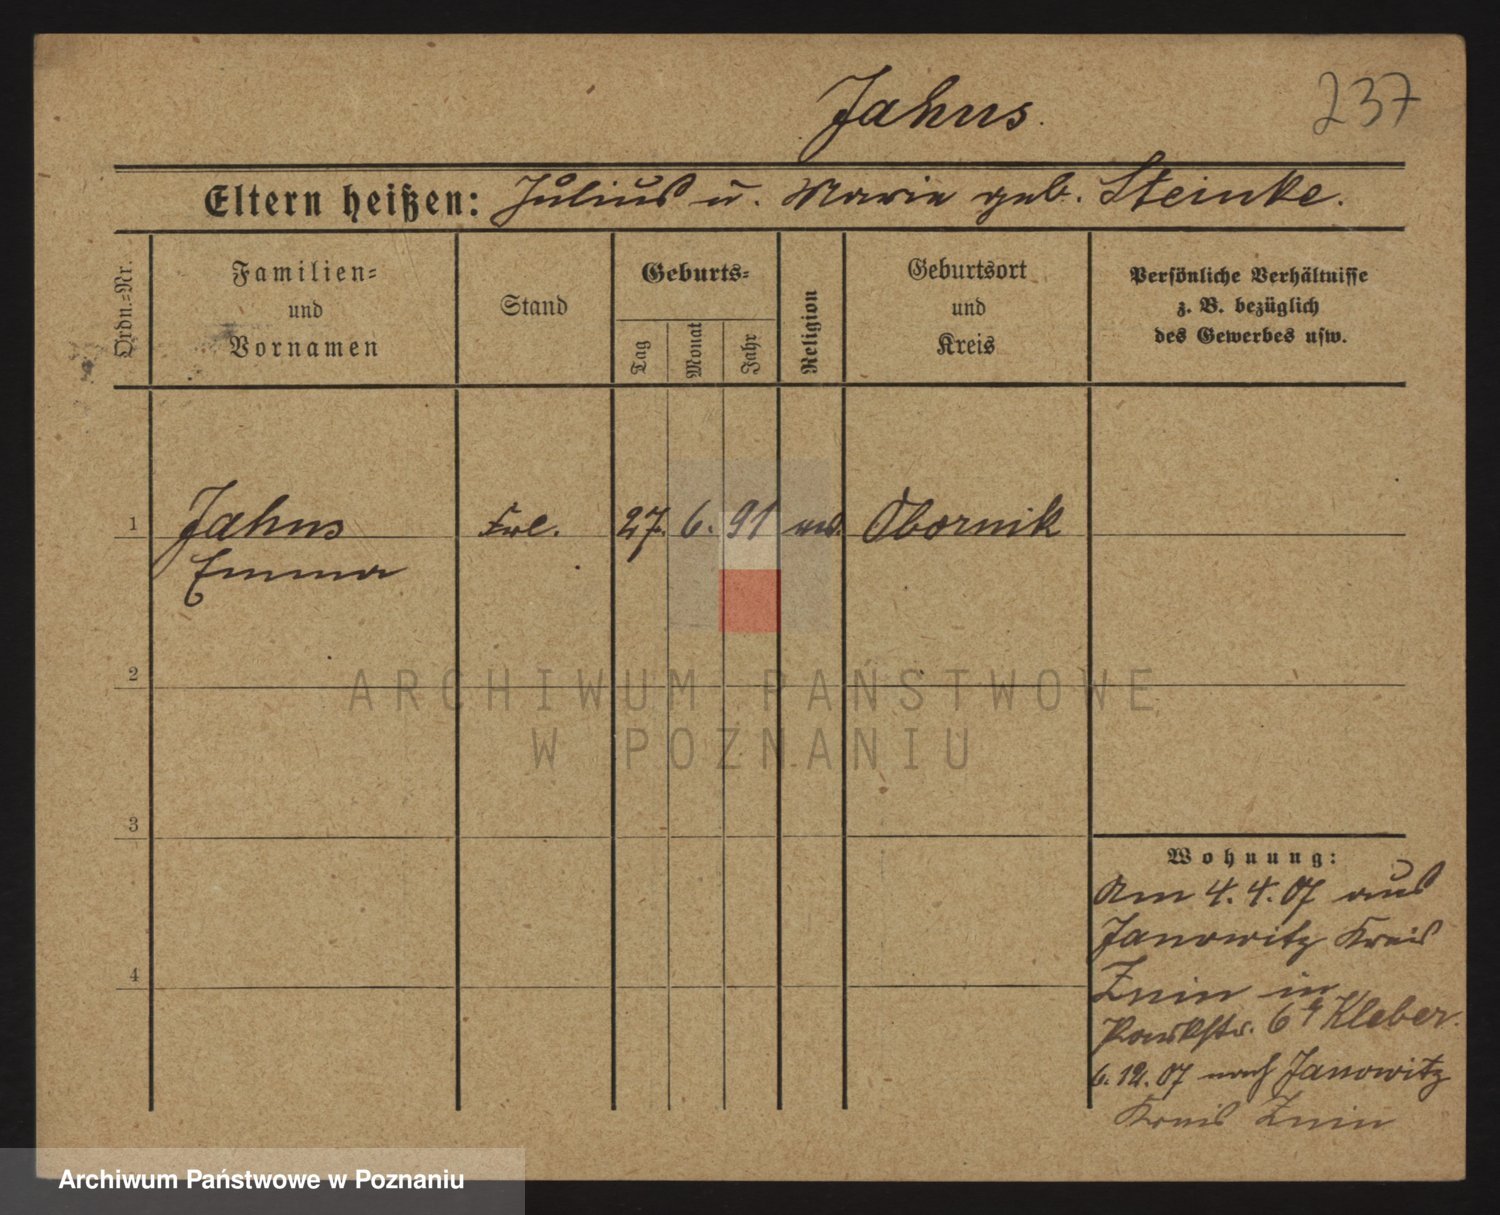 Jahns.
237
Eltern heißen: Julius u. Marie geb. Steinke.
Ordn.=Nr.
Familien=
und
Vornamen
Stand
Geburts=
Tag
Monat
Jahr
Religion
Geburtsort
und
Kreis
Persönliche Verhältnisse
z. B. bezüglich
des Gewerbes usw.
1 Jahns Frl. 27. 6. 91 Obornik
Emma
2
3
4
Wohnung:
Am 4.4.07 aus
Janowitz Kreis
Znin in
Parkstr. 6 Kleber.
6.12.07 nach Janowitz
Kreis Znin
ARCHIWUM PAŃSTWOWE
W POZNANIU
Archiwum Państwowe w Poznaniu